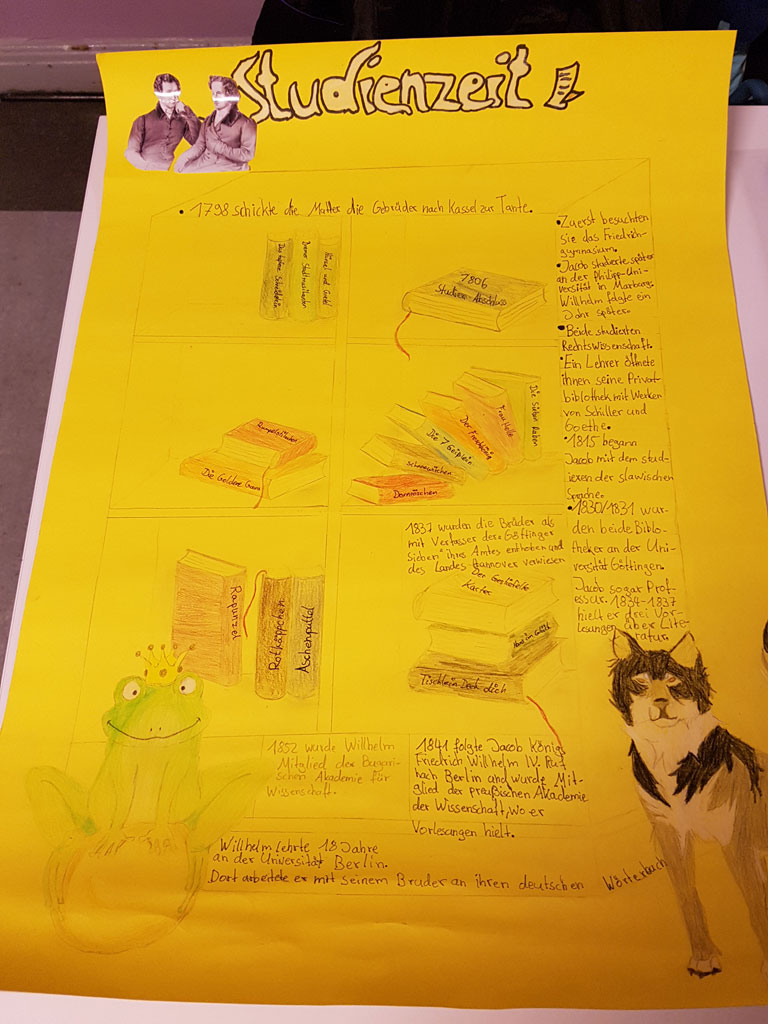 Studienzeit
• 1798 schickte die Mutter die Gebrüder nach Kassel zur Tante.
Das tapfere Schneiderlein
Bremer Stadtmusikanten
Hänsel und Gretel
1806
Studien-Abschluss
• Zuerst besuchten
sie das Friedrich-
gymnasium.
• Jacob studierte später
an der Philipp-Uni-
versität in Marburg.
Willhelm folgte ein
Jahr später.
• Beide studierten
Rechtswissenschaft.
• Ein Lehrer öffnete
ihnen seine Privat-
biblothek mit Werken
von Schiller und
Goethe.
• 1815 begann
Jacob mit dem stud-
ieren der slawischen
Sprache.
• 1830/1831 wur-
den beide Biblo-
theker an der Uni-
versität Göttingen.
Jacob sogar Prof-
essur. 1834-1837
hielt er drei Vor-
lesungen über Lite-
ratur.
Rumpelstilzchen
Die Goldene Gans
Die Sieben Raben
Frau Holle
Der Froschkönig
Die 7 Geißlein
Schneewittchen
Dornröschen
Rapunzel
Rotkäppchen
Aschenputtel
1837 wurden die Brüder als
mit Verfasser der „Göttinger
Sieben" ihres Amtes enthoben und
des Landes Hannover verwiesen
Der Gestiefelte
Kater
Hans im Glück
Tischlein Deck dich
1852 wurde Willhelm
Mitglied der Bugari-
schen Akademie für
Wissenschaft.
1841 folgte Jacob Königs
Friedrich Willhelm IV. Ruf
nach Berlin und wurde Mit-
glied der preußischen Akademie
der Wissenschaft, wo er
Vorlesungen hielt.
Willhelm lehrte 18 Jahre
an der Universität Berlin.
Dort arbeitete er mit seinem Bruder an ihren deutschen Wörterbuch